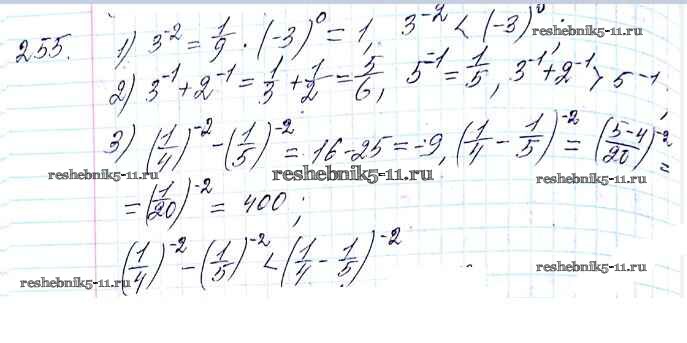 255. 1) 3⁻² = 1/9 · (-3)⁰ = 1, 3⁻² < (-3)⁰;
reshebnik5-11.ru
2) 3⁻¹ + 2⁻¹ = 1/3 + 1/2 = 5/6, 5⁻¹ = 1/5, 3⁻¹ + 2⁻¹ > 5⁻¹;
3) (1/4)⁻² - (1/5)⁻² = 16 - 25 = -9, (1/4 - 1/5)⁻² = ((5-4)/20)⁻² =
reshebnik5-11.ru reshebnik5-11.ru reshebnik5-11.ru
= (1/20)⁻² = 400;
(1/4)⁻² - (1/5)⁻² < (1/4 - 1/5)⁻²
reshebnik5-11.ru reshebnik5-11.ru